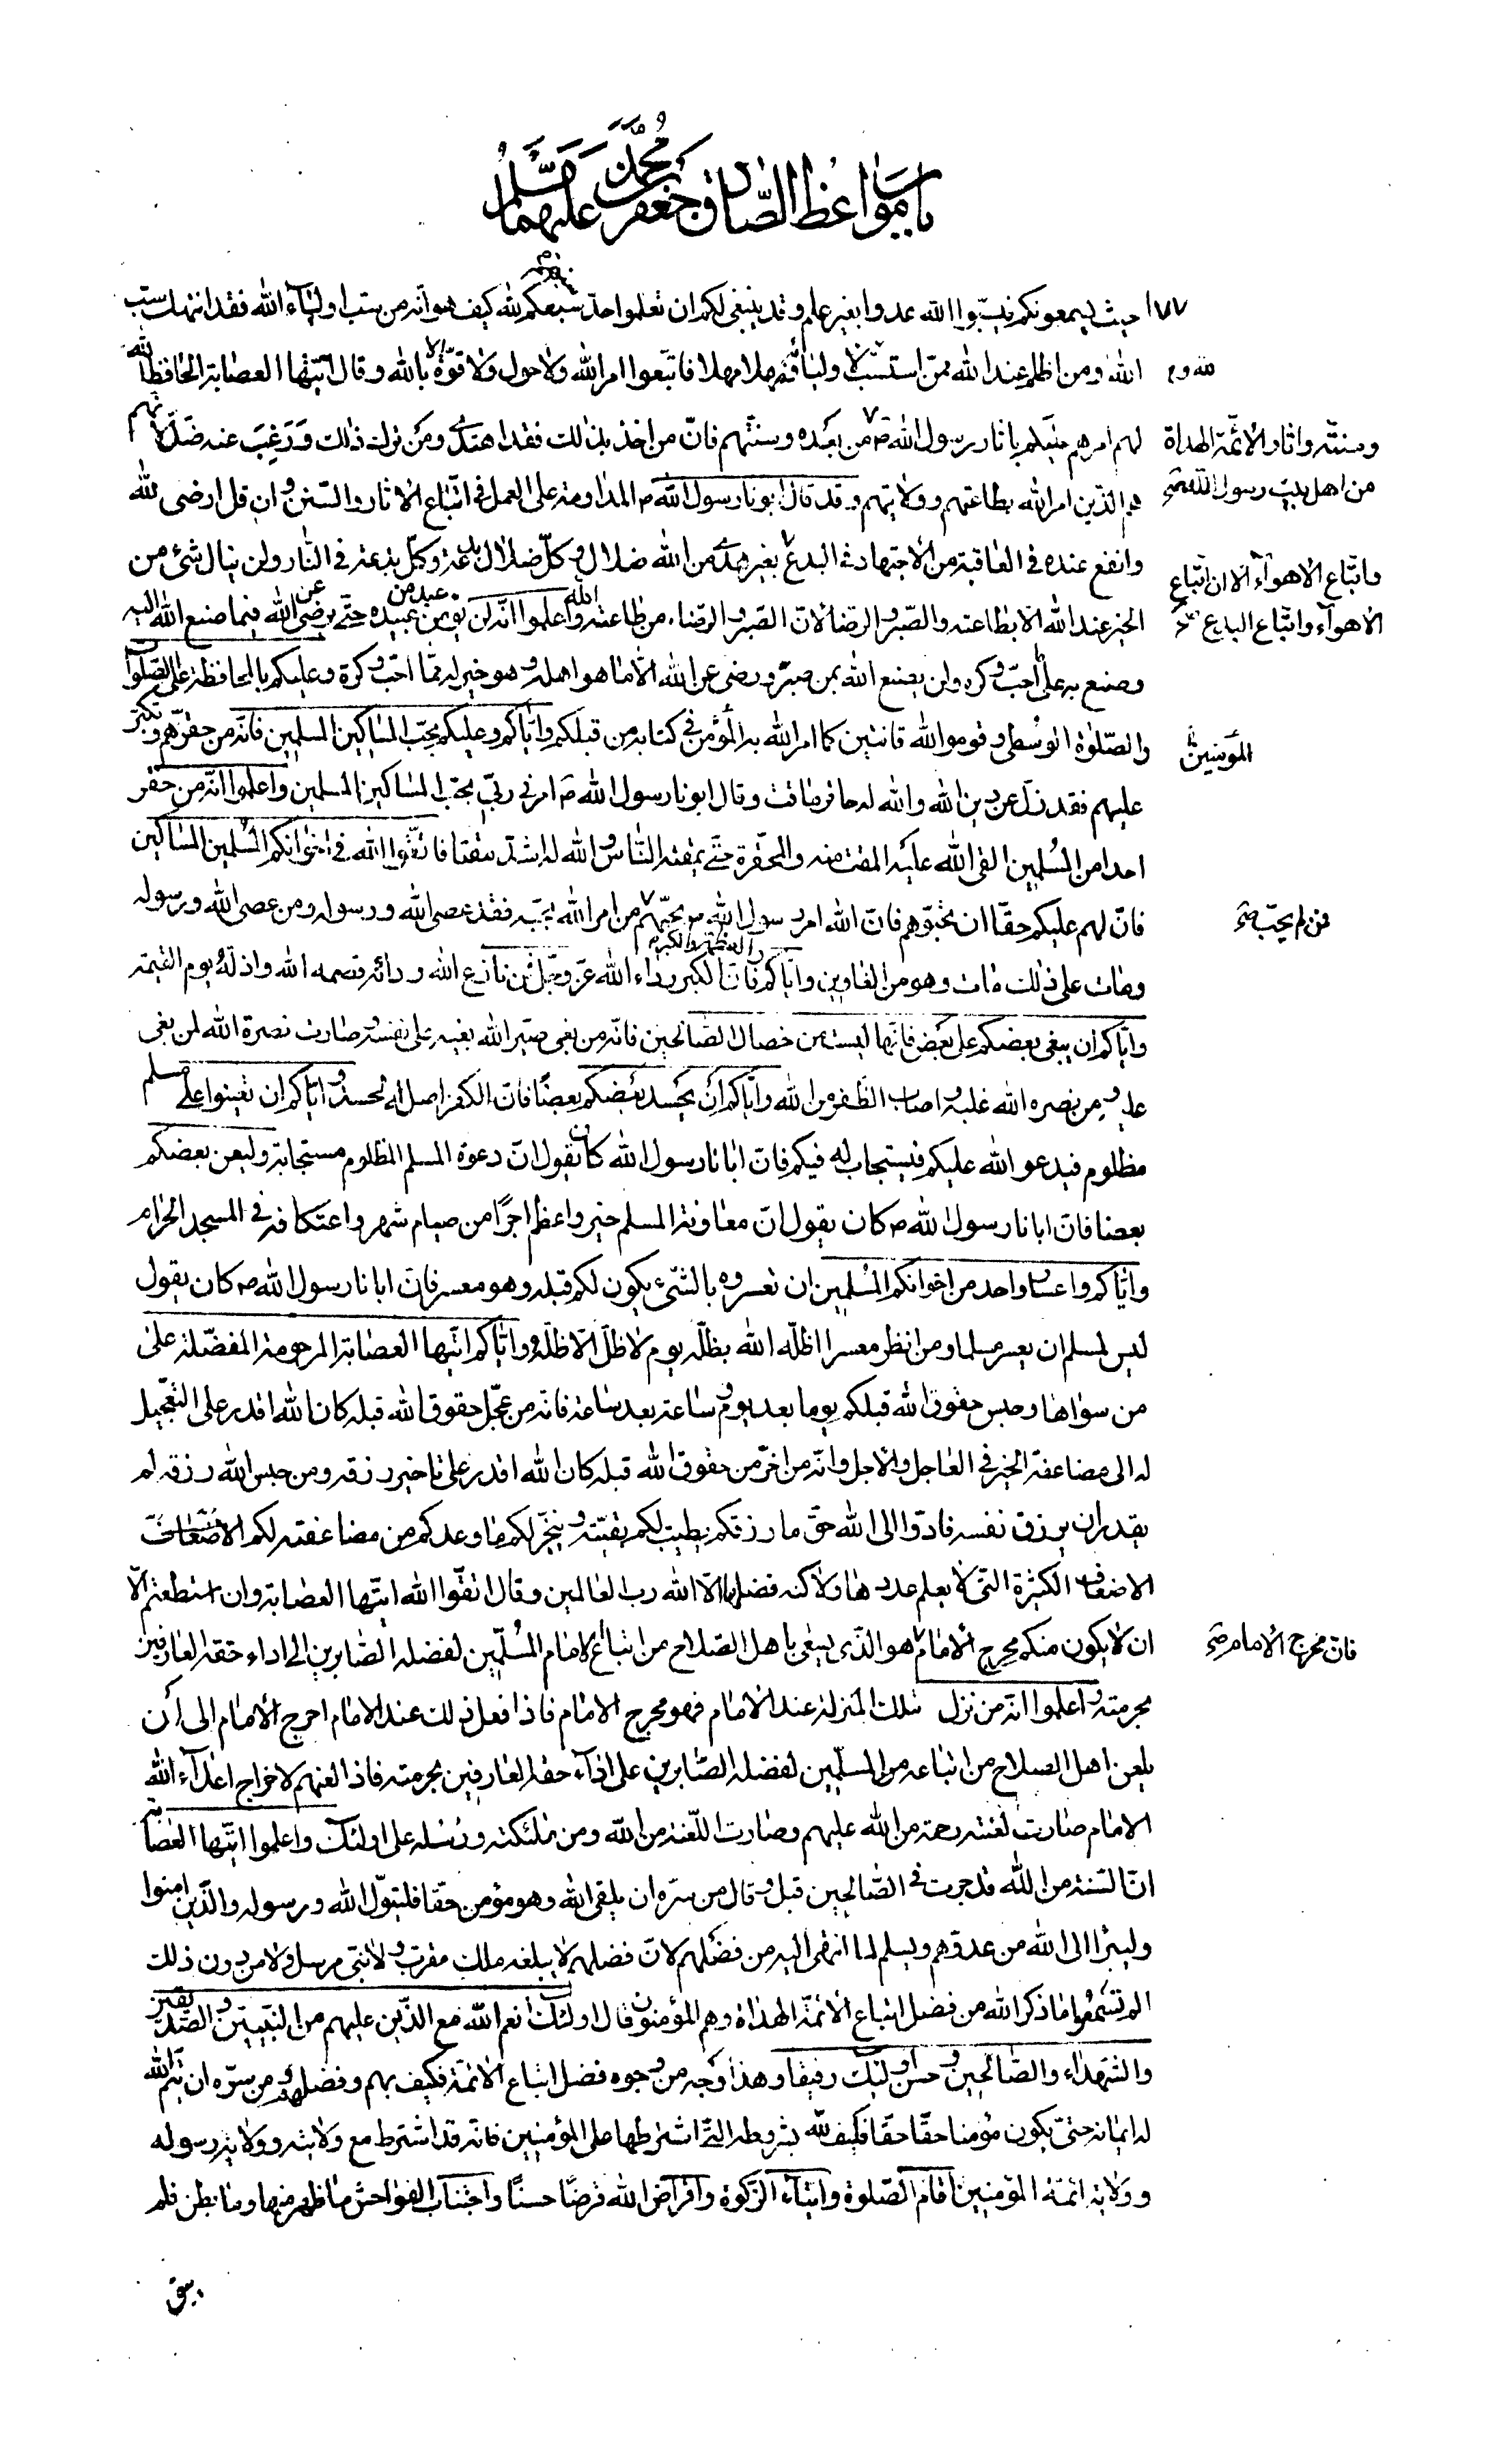 باب مواعظ الصادق جعفر بن محمد عليهما السلم
١٧٧ حيث يسمعونكم فيسبّوا الله عدوا بغير علم وقد ينبغى لكم ان تعلموا حدّ سبّهم لله كيف هو انّه من سبّ اولياء الله فقد انتهك سبّ
الله ومن اظلم عند الله ممّن استسبّ لله ولاوليائه فمهلا مهلا فاتّبعوا امر الله ولا حول ولا قوّة الا بالله وقال ايّتها العصابة الحافظ الله
لهم امرهم عليكم باثار رسول الله ص من بعده وسنّتهم فانّ من اخذ بذلك فقد اهتدى ومن ترك ذلك ورغب عنه ضلّ لانّهم
وسنّته واثار الائمّة الهداة
من اهل بيت رسول الله صح
هم الذين امر الله بطاعتهم وولايتهم وقد قال ابونا رسول الله ص المداومة على العمل فى اتّباع الاثار والسنن وان قل ارضى لله
وانفع عنده فى العاقبة من الاجتهاد فى البدع بغير هدى من الله ضلال وكلّ ضلال بدعة وكلّ بدعة فى النّار ولن ينال شئ من
واتّباع الاهواء الا ان اتّباع
الاهواء واتّباع البدع صح
الخير عند الله الا بطاعته والصّبر والرضا لانّ الصّبر والرضا من طاعة الله واعلموا انّه لن يؤمن عبد من عبيده حتّى يرضى عن الله فيما صنع الله اليه
وصنع به على ما احبّ وكره ولن يصنع الله بمن صبر ورضى عن الله الّا ما هو اهله وهو خير له ممّا احبّ وكره وعليكم بالمحافظة على الصّلوات
والصّلوة الوسطى وقوموا لله قانتين كما امر الله به المؤمنين فى كتابه من قبلكم وايّاكم وعليكم بحبّ المساكين المسلمين فانّه من حقّرهم وتكبّر
المؤمنين
عليهم فقد زلّ عن دين الله والله له حاقر ماقت وقال ابونا رسول الله ص امرنى ربّى بحبّ المساكين المسلمين واعلموا انّه من حقر
احدا من المسلمين القى الله عليه المقت منه والمحقرة حتّى يمقته النّاس والله له اشدّ مقتا فاتّقوا الله فى اخوانكم المسلمين المساكين
فانّ لهم عليكم حقّا ان تحبّوهم فانّ الله امر رسول الله ص بحبّهم من امر الله بحبّه فقد عصى الله ورسوله ومن عصى الله ورسوله
فمن لم يحبّ صح
ومات على ذلك مات وهو من الغاوين وايّاكم والعظمة والكبر فانّ الكبر رداء الله عزّ وجلّ فمن نازع الله ردائه قصمه الله واذلّه يوم القيمة
وايّاكم ان يبغى بعضكم على بعض فانّها ليست من خصال الصّالحين فانّه من بغى صيّر الله بغيه على نفسه وصارت نصرة الله لمن بغى
عليه ومن نصره الله غلب واصاب الظّفر من الله وايّاكم ان يحسد بعضكم بعضًا فانّ الكفر اصله الحسد وايّاكم ان تعينوا على مسلم
مظلوم فيدعو الله عليكم فيستجاب له فيكم فانّ ابانا رسول الله كان يقول انّ دعوة المسلم المظلوم مستجابة وليعن بعضكم
بعضا فانّ ابانا رسول الله ص كان يقول انّ معاونة المسلم خير واعظم اجرًا من صيام شهر واعتكافه فى المسجد الحرام
وايّاكم واعسار احد من اخوانكم المسلمين ان تعسروه بالشّئ يكون لكم قبله وهو معسر فانّ ابانا رسول الله ص كان يقول
ليس لمسلم ان يعسر مسلما ومن انظر معسرا اظلّه الله بظلّه يوم لا ظلّ الّا ظلّه وايّاكم ايّتها العصابة المرحومة المفضّلة على
من سواها وحبس حقوق الله قبلكم يوما بعد يوم وساعة بعد ساعة فانّه من عجّل حقوق الله قبله كان الله اقدر على التعجيل
له الى مضاعفة الخير فى العاجل والاجل وانّه من اخّر من حقوق الله قبله كان الله اقدر على تاخير رزقه ومن حبس الله رزقه لم
يقدر ان يرزق نفسه فادّوا الى الله حقّ ما رزقكم يطيب لكم بقيّته وينجز لكم ما وعدكم من مضاعفته لكم الاضعاف
الاضعاف الكثيرة التى لا يعلم عددها ولا كنه فضلها الّا الله رب العالمين وقال اتّقوا الله ايّتها العصابة وان استطعتم الّا
ان لا يكون منكم محرج الامام هو الذى يسعى باهل الصّلاح من اتباع الامام المسلّمين لفضله الصّابرين الى اداء حقّه العارفين
فانّ محرج الامام صح
بحرمته واعلموا انّه من نزل بتلك المنزلة عند الامام فهو محرج الامام فاذا فعل ذلك عند الامام احرج الامام الى ان
يلعن اهل الصلاح من اتباعه من المسلّمين لفضله الصّابرين على اداء حقه العارفين بحرمته فاذا لعنهم لاحراج اعداء الله
الامام صارت لعنته رحمة من الله عليهم وصارت اللّعنة من الله ومن ملئكته ورسله على اولئك واعلموا ايّتها العصابة
انّ السّنة من اللّه قد جرت فى الصّالحين قبل وقال من سرّه ان يلقى الله وهو مؤمن حقّا فليتولّ الله ورسوله والّذين امنوا
وليبرأ الى الله من عدوّهم ويسلم لما انتهى اليه من فضلهم لانّ فضلهم لا يبلغه ملك مقرب ولا نبىّ مرسل ولا من دون ذلك
الم تسمعوا ما ذكر الله من فضل اتباع الائمّة الهداة وهم المؤمنون قال اولئك مع الذّين انعم اللّه عليهم من النّبيّين والصّدّيقين
والشّهداء والصّالحين وحسن اولئك رفيقا وهذا وجه من وجوه فضل اتباع الائمّة فكيف بهم وفضلهم ومن سرّه ان يتمّ الله
له ايمانه حتّى يكون مؤمنا حقّا حقّا فليف لله بشروطه التّى اشترطها على المؤمنين فانّه قد اشترط مع ولايته وولاية رسوله
وولاية ائمّة المؤمنين اقام الصّلوة وايتاء الزّكوة واقراض الله قرضًا حسنًا واجتناب الفواحش ما ظهر منها وما بطن فلم
يبق